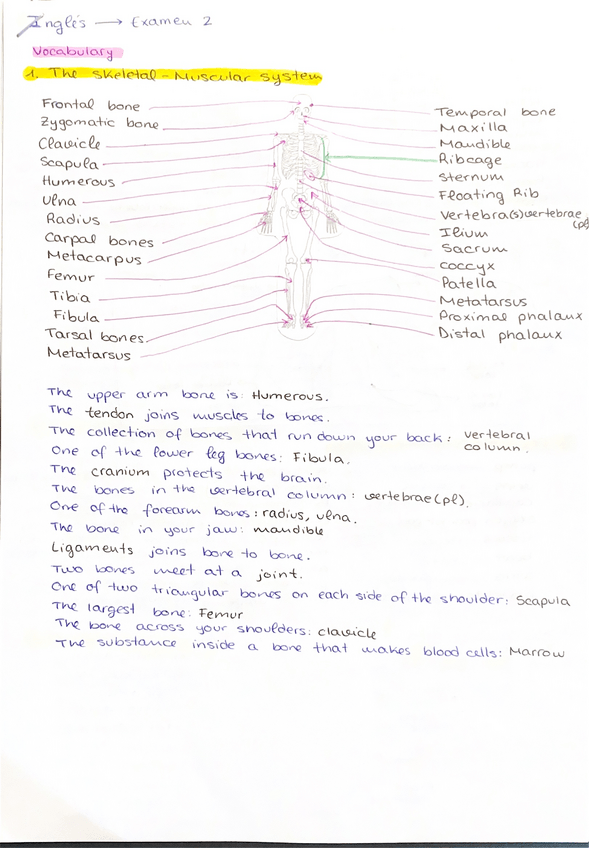 Inglés → Examen 2
Vocabulary
1. The skeletal-Muscular system
Frontal bone
Zygomatic bone
Clavicle
Scapula
Humerous
Ulna
Radius
Carpal bones
Metacarpus
Femur
Tibia
Fibula
Tarsal bones
Metatarsus
Temporal bone
Maxilla
Mandible
Ribcage
Sternum
Floating Rib
Vertebra(s) vertebrae (pl)
Ilium
Sacrum
coccyx
Patella
Metatarsus
Proximal phalaux
Distal phalaux
The upper arm bone is: Humerous.
The tendon joins muscles to bones.
The collection of bones that run down your back: vertebral column.
One of the lower leg bones: Fibula.
The cranium protects the brain.
The bones in the vertebral column: vertebrae (pl).
One of the forearm bones: radius, ulna.
The bone in your jaw: mandible
Ligaments joins bone to bone.
Two bones meet at a joint.
One of two triangular bones on each side of the shoulder: Scapula
The largest bone: Femur
The bone across your shoulders: clavicle
The substance inside a bone that makes blood cells: Marrow